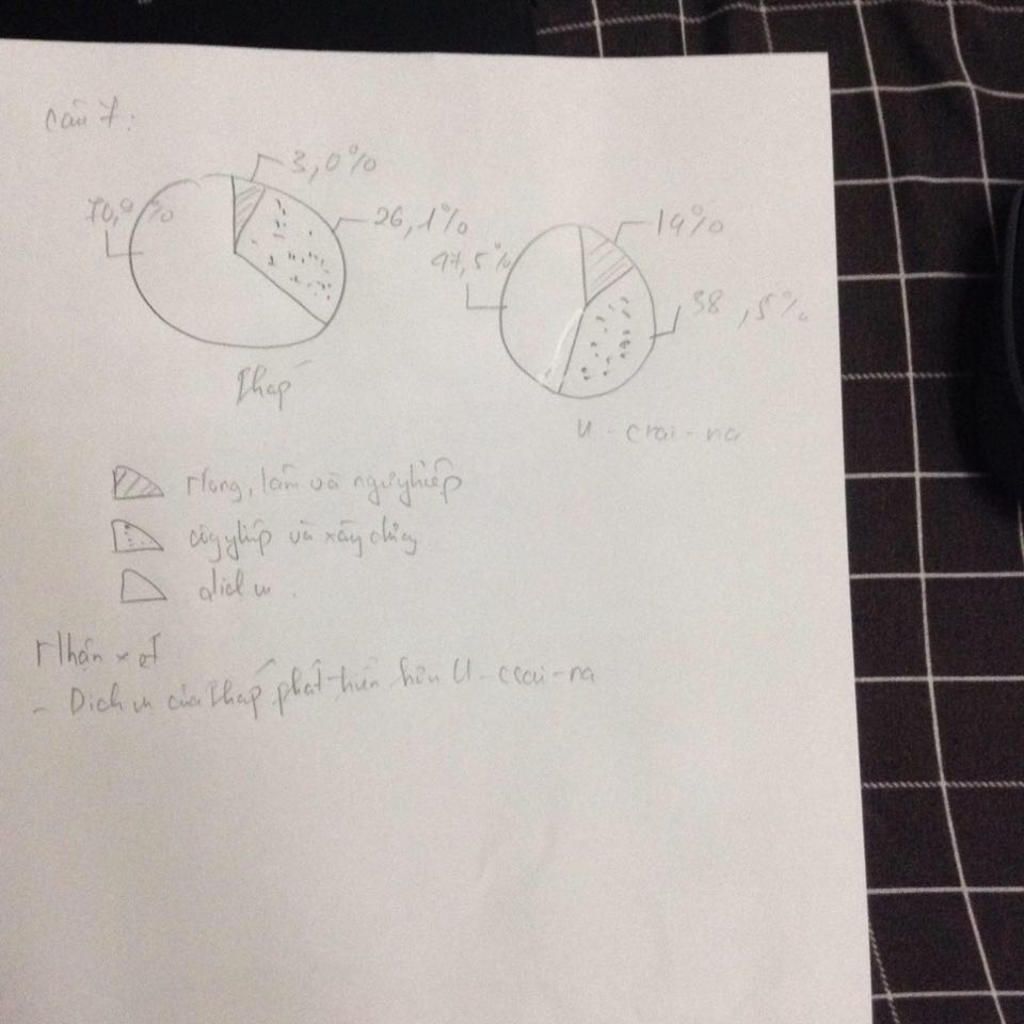 Câu 7:
3,0%
70,9%
26,1%
Pháp
14%
47,5%
38,5%
U-crai-na
Nông, lâm và ngư nghiệp
công nghiệp và xây dựng
dịch vụ
Nhận xét
- Dịch vụ của Pháp phát triển hơn U-crai-na